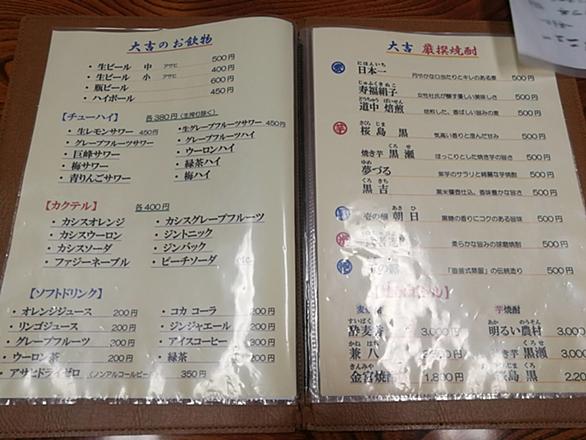 大吉のお飲物
・生ビール 中 アサヒ 500円
・生ビール 小 アサヒ 400円
・瓶ビール 600円
・ハイボール 450円
【チューハイ】 各380円(生搾り除く)
・生レモンサワー 450円
・グレープフルーツサワー
・巨峰サワー
・梅サワー
・青りんごサワー
・生グレープフルーツサワー 450円
・グレープフルーツハイ
・ウーロンハイ
・緑茶ハイ
・梅ハイ
【カクテル】 各400円
・カシスオレンジ
・カシスウーロン
・カシスソーダ
・ファジーネーブル
・カシスグレープフルーツ
・ジントニック
・ジンバック
・ピーチソーダ
【ソフトドリンク】
・オレンジジュース 200円
・リンゴジュース 200円
・グレープフルーツ 200円
・ウーロン茶 200円
・アサヒドライゼロ くノンアルコールビール 350円
・コカ コーラ 200円
・ジンジャエール 200円
・アイスコーヒー 300円
・緑茶 200円
大吉 厳撰焼酎
にほんいち
日本一 円やかな口当たりとキレのある麦 500円
じゅふくきぬこ
寿福絹子 女性杜氏が醸す優しい美味しさ 500円
どうちゅう ばいせん
道中 焙煎 焙煎した、香ばしい旨みの麦 500円
さくらじま くろ
芋 桜島 黒 気高い香りと澄んだ甘み 500円
くろせ
焼き芋 黒瀬 ほっこりとした焼き芋の旨さ 500円
ゆめ
夢づる 紫芋のサラリと綺麗な芋焼酎 500円
くろきち
黒吉 500円
あさひ
壱の醸 朝日 黒糖の香りにコクのある旨味 500円
柔らかな旨みの球磨焼酎 500円
500円
芋焼酎
すいばくしゃ
3,000円
あか のうそん
明るい農村 3,000円
かね はち
兼八
くろせ
焼き芋 黒瀬 3,000円
きんみや
金宮焼酎 1,800円
桜島 黒 2,20